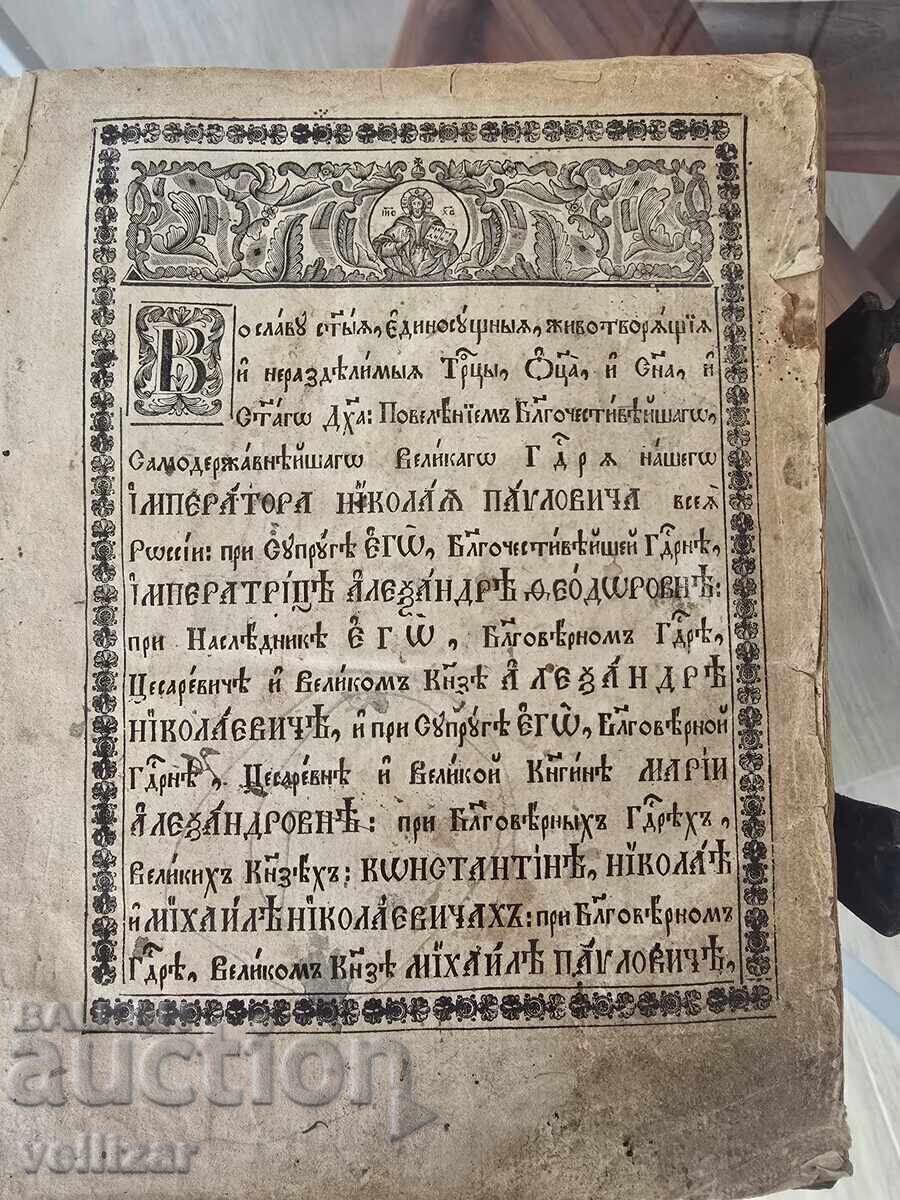 І҆ИС ХС
Во сла́ву ст҃ы́ѧ, є҆диносꙋ́щныѧ, животворѧ́щїѧ
и҆ нераздѣ́лимыѧ Трⷪ҇цы, Ѻ҆ц҃а̀, и҆ Сн҃а, и҆
Ст҃а́гѡ Дх҃а: Повелѣ́нїемъ Бл҃гочести́вѣйшагѡ,
Самодержа́внѣйшагѡ Вели́кагѡ Гдⷭ҇рѧ на́шегѡ
І҆МПЕРА́ТОРА НЇКОЛА́Ѧ ПА́ѴЛОВИЧА всеѧ̀
Рѡссі́и: при Сꙋпрꙋ́гѣ Є҆ГѠ̀, Бл҃гочести́вѣйшей Гдⷭ҇рнѣ,
І҆МПЕРАТРІ́ЦѢ А҆ЛЕѮА́НДРѢ Ѳ҆ЕО́ДѠРОВНѢ:
при Наслѣ́дникѣ Є҆ГѠ̀, Бл҃говѣ́рномъ Гдⷭ҇рѣ,
Цесаре́вичѣ и҆ Вели́комъ Кн҃зѣ А҆ЛЕѮА́НДРѢ
НЇКОЛА́ЕВИЧѢ, и҆ при Сꙋпрꙋ́гѣ Є҆ГѠ̀, Бл҃говѣ́рной
Гдⷭ҇рнѣ, Цесаре́внѣ и҆ Вели́кой Кн҃ги́нѣ МАРІ́И
А҆ЛЕѮА́НДРОВНѢ: при Бл҃говѣ́рныхъ Гдⷭ҇рѣхъ,
Вели́кихъ Кн҃зѣ́хъ: КѠНСТАНТІ́НѢ, НЇКОЛА́Ѣ
и҆ МЇХАИ́ЛѢ НЇКОЛА́ЕВИЧАХЪ: при Бл҃говѣ́рномъ
Гдⷭ҇рѣ, Вели́комъ Кн҃зѣ МЇХАИ́ЛѢ ПА́ѴЛОВИЧѢ,
auction
vellizar